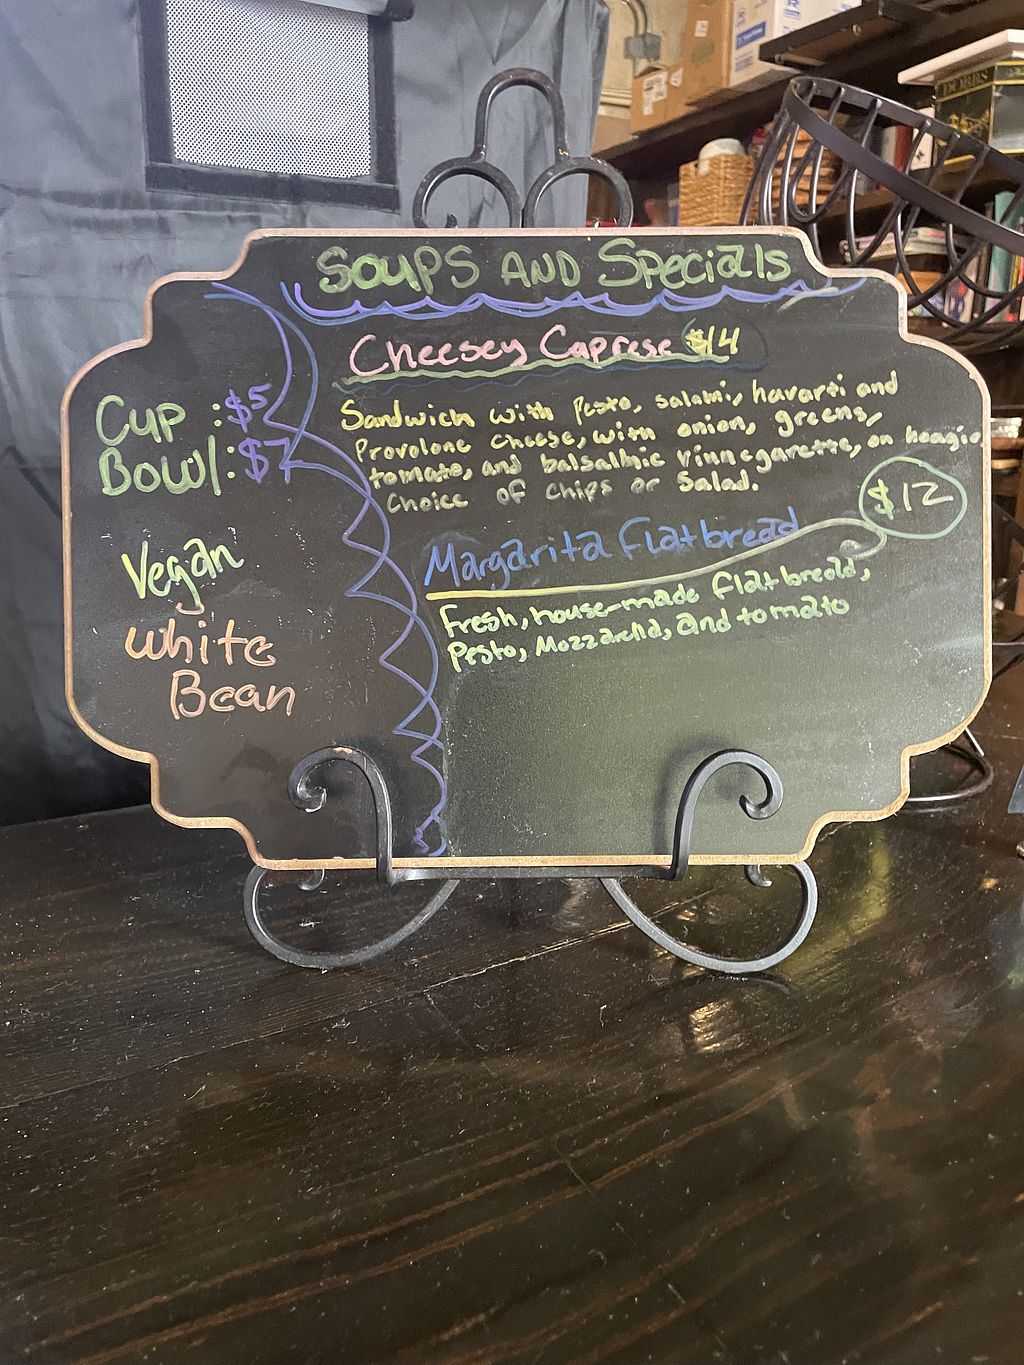 Soups AND Specials
Cup : $5
Bowl : $7
Vegan
white
Bean
Cheesey Caprese $14
Sandwich with Pesto, salami, havarti and
Provolone cheese, with onion, greens,
tomato, and balsalmic vinnegarette, on hoagie
Choice of chips or Salad.
Margarita Flatbread $12
Fresh, house-made flatbread,
Pesto, Mozzarella, and tomato